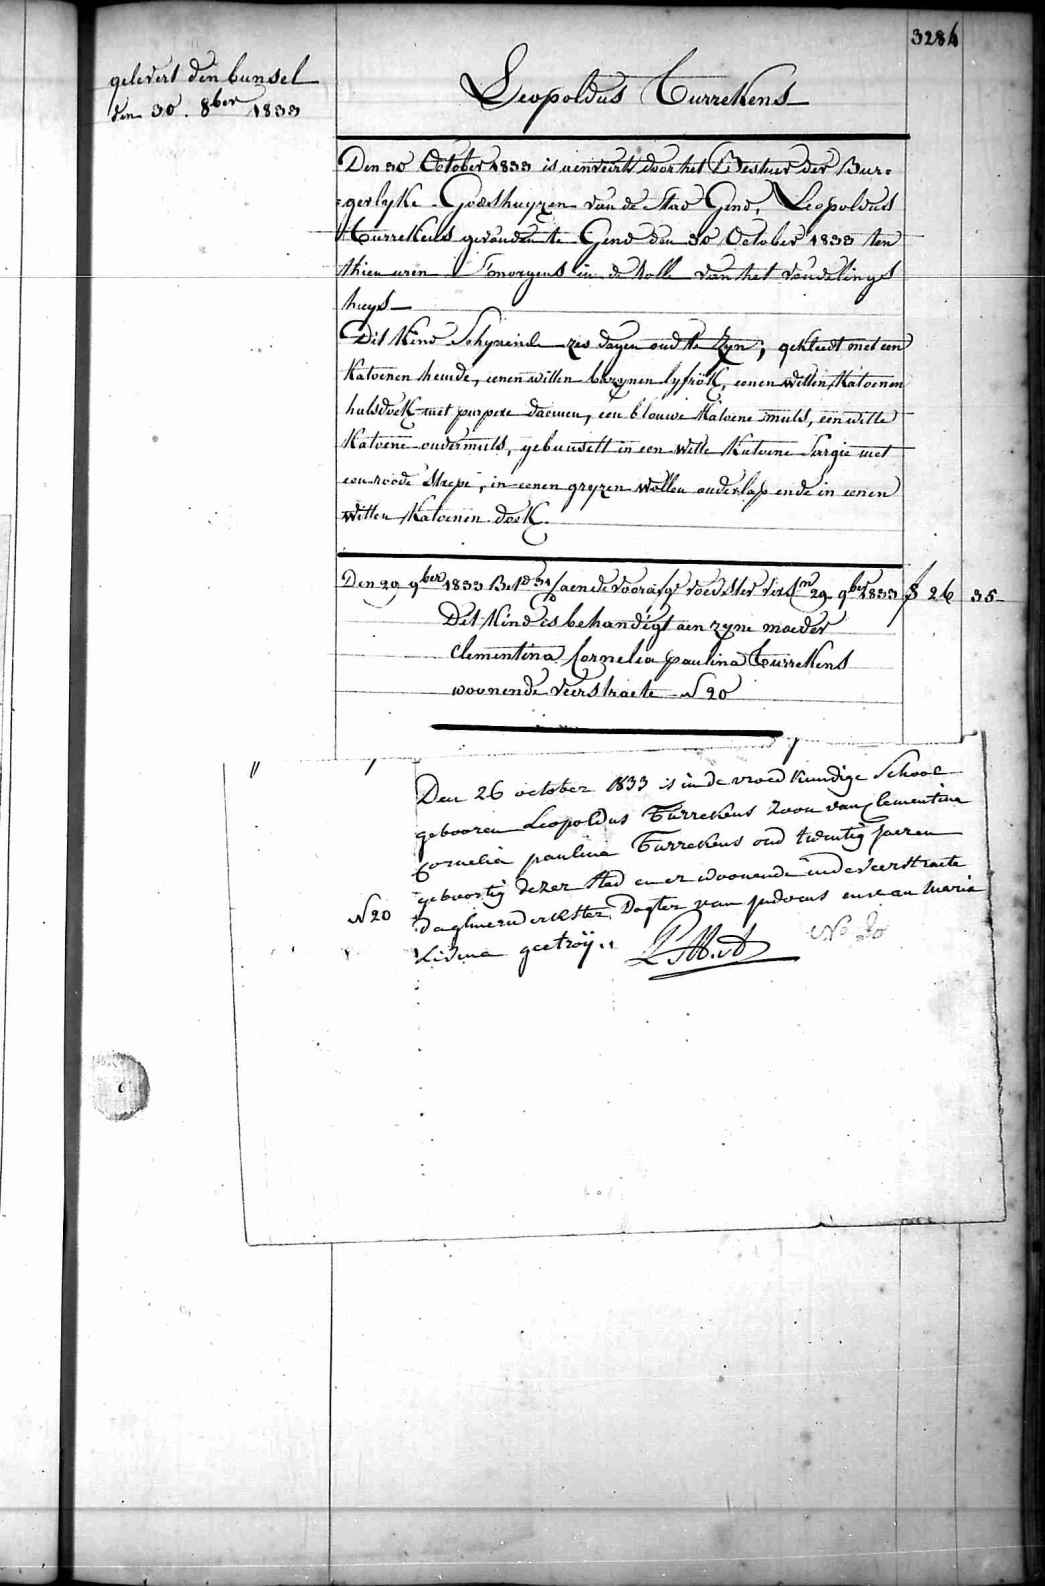 3284
gelevert den bunsel
den 30. 8ber 1833
Leopoldus Turrekens
Den 30 October 1833 is aenveert door het Bestuer der Bur=
=gerlyke Godshuyzen van de Stad Gend, Leopoldus
Turrekens gevonden te Gend den 30 October 1833 ten
thien uren 's morgens in de Rolle van het vondelings
huys
Dit Kind Schynende zes dagen oud te Zyn; gekleedt met een
Katoenen hemde, eenen witten bazynen lyfrok, eenen witten Katoenen
halsdoek met purpere daemen, een blouwe Katoene muts, een witte
Katoene ondermuts, gebunselt in een witte Katoene Sargie met
een roode Strepe, in eenen gryzen wollen onderlap ende in eenen
witten Katoenen doek.
Den 29 9ber 1833 Bet aen de voorige voedster tot 29 9ber 1833 f 26 35
Dit Kind is behandigt aen zyne moeder
Clementina Cornelia paulina Turrekens
woonende veerstraete N 20
Den 26 october 1833 is in de vroedkundige School
gebooren Leopoldus Turrekens Zoon van Clementina
Cornelia paulina Turrekens oud twintig Jaeren
geboortig dezer Stad en er woonende in de veerstraete
N 20 daghuerwerkster, Dogter van Judocus en van Maria
Livina geetroÿ
No 20